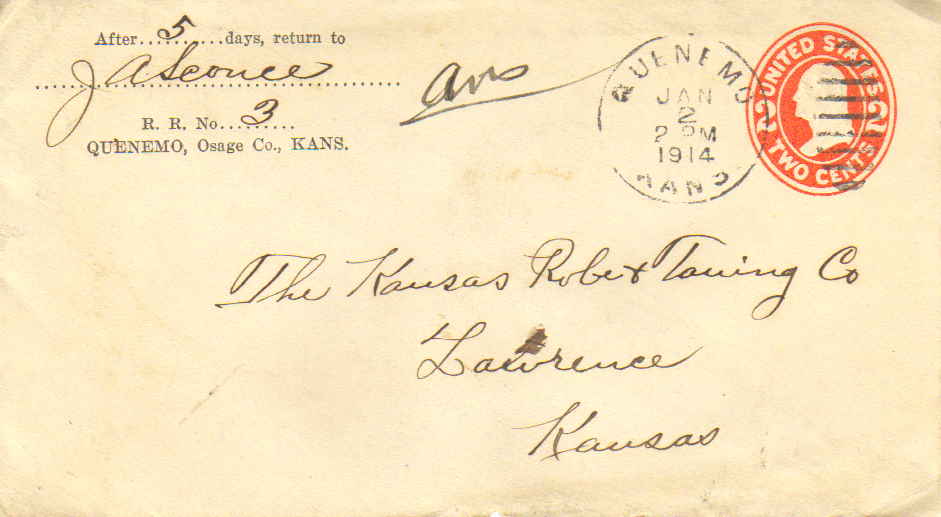 After.....5.....days, return to
J A Sconce
R. R. No. 3
QUENEMO, Osage Co., KANS.
Ans
QUENEMO
JAN
2
2 PM
1914
KANS.
UNITED STATES
2 2
TWO CENTS
The Kansas Robe & Taning Co
Lawrence
Kansas